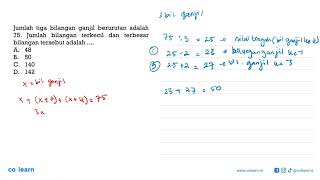 Jumlah tiga bilangan ganjil berurutan adalah
75. Jumlah bilangan terkecil dan terbesar
bilangan tersebut adalah ....
A. 48
B. 50
C. 140
D. 142
x = bil. ganjil
x + (x+2) + (x+4) = 75
3x
3 bil. ganjil
75 : 3 = 25 → nilai tengah (bil ganjil ke-2)
25 - 2 = 23 → bilangan ganjil ke-1
25 + 2 = 27 → bil. ganjil ke-3
23 + 27 = 50
co learn
www.colearn.id
@colearn.id